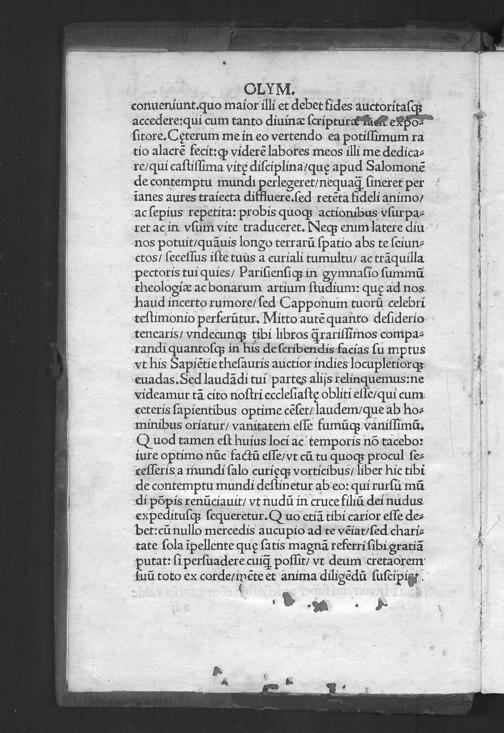 OLYM.
conueniunt.quo maior illi et debet fides auctoritasq3
accedere:qui cum tanto diuinæ scripturæ expo-
sitore. Cęterum me in eo vertendo ea potissimum ra
tio alacrē fecit:q̄ viderē labores meos illi me dedica-
re/qui castissima vitę disciplina/quę apud Salomonē
de contemptu mundi perlegeret/nequaq̄ sineret per
īanes aures traiecta diffluere.sed retēta fideli animo/
ac sępius repetita: probis quoq3 actionibus vsurpa-
ret ac in vsum vitę traduceret. Neq3 enim latere diu
nos potuit/quāuis longo terrarū spatio abs te seiun-
ctos/ secessus iste tuus a curiali tumultu/ac trāquilla
pectoris tui quies/ Parisiensiq3 in gymnasio summū
theologiæ ac bonarum artium studium: quę ad nos
haud incerto rumore/sed Capponum tuorū celebri
testimonio perferūtur. Mitto autē quanto desiderio
tenearis/vndecunq3 tibi libros q̄rarissimos compa-
randi quantosq3 in his describendis facias sumptus
vt his Sapiētię thesauris auctior indies locupletiorq3
euadas.Sed laudādi tui partes alijs relinquemus:ne
videamur tā cito nostri ecclesiastę obliti esse/qui cum
ceteris sapientibus optime cēset/laudem/que ab ho-
minibus oriatur/vanitatem esse fumūq3 vanissimū.
Quod tamen est huius loci ac temporis nō tacebo:
iure optimo nūc factū esse/vt cū tu quoq3 procul se-
cesseris a mundi salo curięq3 vorticibus/liber hic tibi
de contemptu mundi destinetur ab eo: qui rursū mū
di pōpis renūciauit/vt nudū in cruce filiū dei nudus
expeditusq3 sequeretur.Quo etiā tibi carior esse de-
bet:cū nullo mercedis aucupio ad te vēiat/sed chari-
tate sola īpellente quę satis magnā referri sibi gratiā
putat: si persuadere cuiq̄ possit/vt deum creatorem
suū toto ex corde/mēte et anima diligēdū suscipiat.